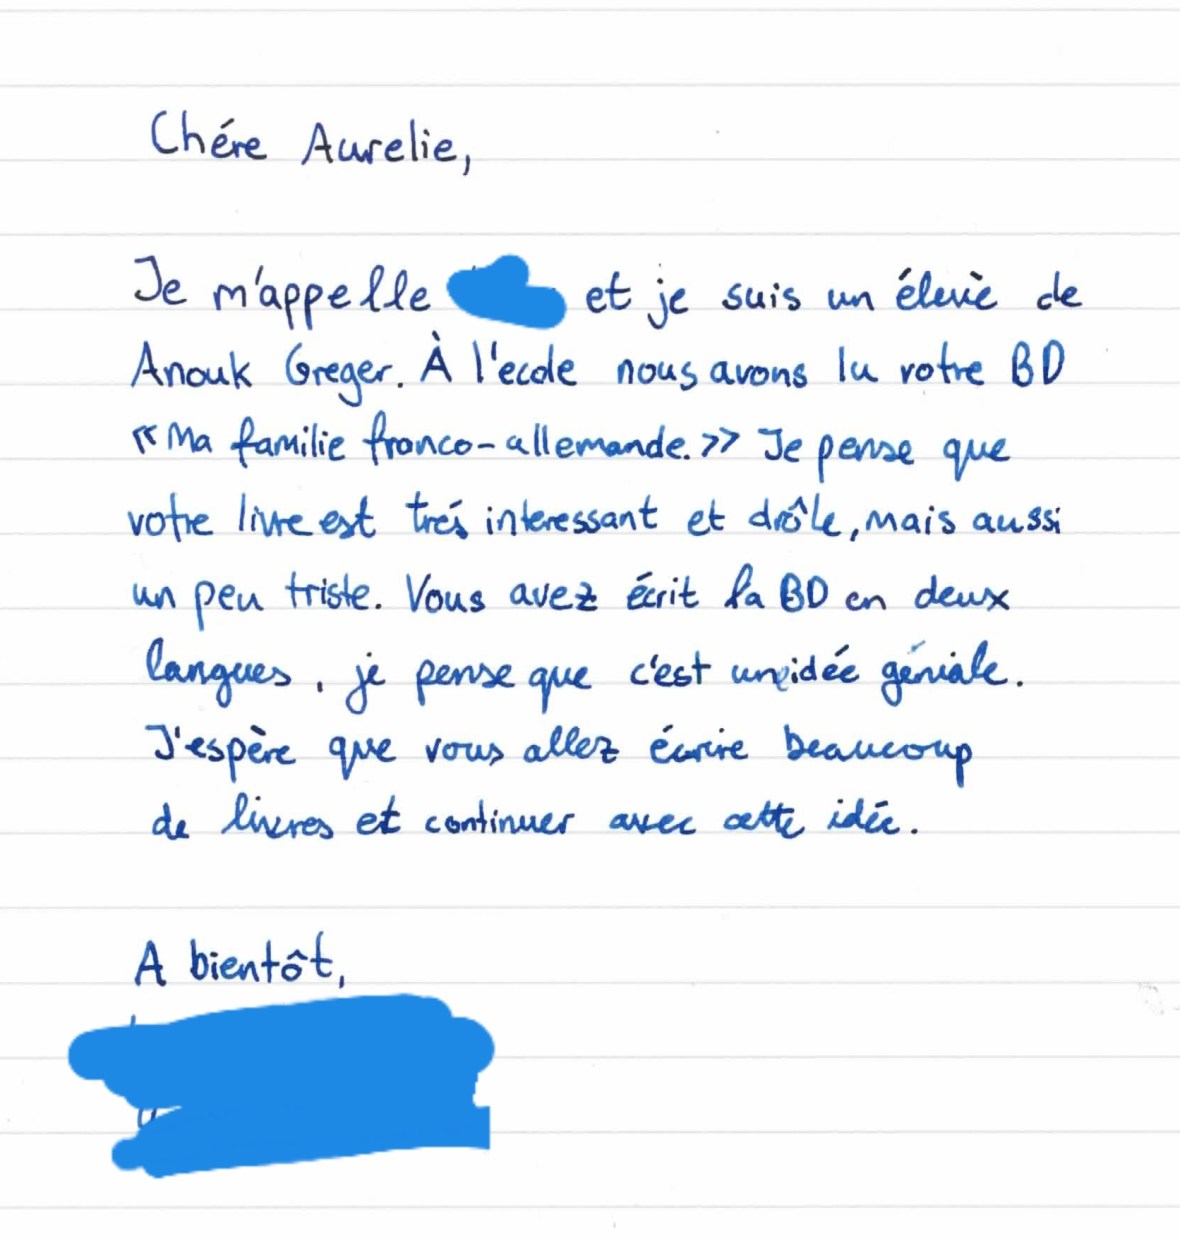 Chére Aurelie,
Je m'appelle et je suis un élevè de
Anouk Greger. À l'ecole nous avons lu votre BD
« Ma familie franco-allemande. » Je pense que
votre livre est trés interessant et drôle, mais aussi
un peu triste. Vous avez écrit la BD en deux
langues, je pense que c'est une idée géniale.
J'espère que vous allez écrire beaucoup
de livres et continuer avec cette idée.
A bientôt,